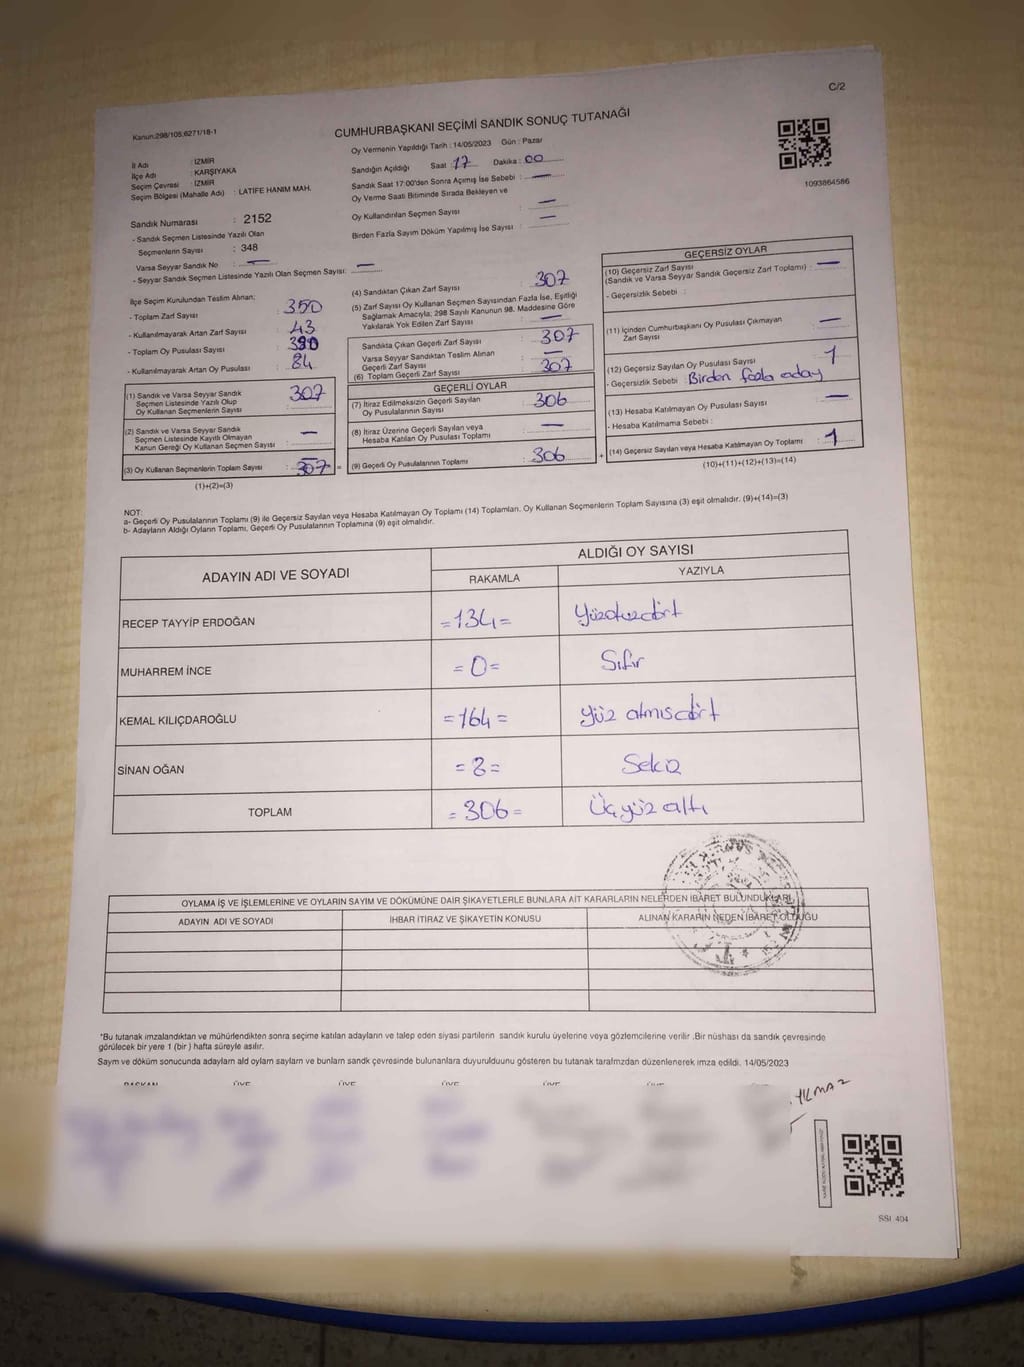 C/2
Kanun:298/105;6271/18-1
CUMHURBAŞKANI SEÇİMİ SANDIK SONUÇ TUTANAĞI
Oy Vermenin Yapıldığı Tarih : 14/05/2023 Gün : Pazar
1093864586
İl Adı : İZMİR
İlçe Adı : KARŞIYAKA
Seçim Çevresi : İZMİR
Seçim Bölgesi (Mahalle Adı) : LATİFE HANIM MAH.
Sandık Numarası : 2152
- Sandık Seçmen Listesinde Yazılı Olan
Seçmenlerin Sayısı : 348
Varsa Seyyar Sandık No : —
- Seyyar Sandık Seçmen Listesinde Yazılı Olan Seçmen Sayısı: —
Sandığın Açıldığı Saat : 17 Dakika : 00
Sandık Saat 17:00'den Sonra Açımış İse Sebebi : —
Oy Verme Saati Bitiminde Sırada Bekleyen ve
Oy Kullandırılan Seçmen Sayısı : —
Birden Fazla Sayım Döküm Yapılmış İse Sayısı : —
İlçe Seçim Kurulundan Teslim Alınan;
- Toplam Zarf Sayısı : 350
- Kullanılmayarak Artan Zarf Sayısı : 43
- Toplam Oy Pusulası Sayısı :
- Kullanılmayarak Artan Oy Pusulası : 84
(1) Sandık ve Varsa Seyyar Sandık
Seçmen Listesinde Yazılı Olup
Oy Kullanan Seçmenlerin Sayısı : 307
(2) Sandık ve Varsa Seyyar Sandık
Seçmen Listesinde Kayıtlı Olmayan
Kanun Gereği Oy Kullanan Seçmen Sayısı : —
(3) Oy Kullanan Seçmenlerin Toplam Sayısı : 307 =
(1)+(2)=(3)
(4) Sandıktan Çıkan Zarf Sayısı : 307
(5) Zarf Sayısı Oy Kullanan Seçmen Sayısından Fazla İse, Eşitliği
Sağlamak Amacıyla; 298 Sayılı Kanunun 98. Maddesine Göre
Yakılarak Yok Edilen Zarf Sayısı : —
Sandıkta Çıkan Geçerli Zarf Sayısı : 307
Varsa Seyyar Sandıktan Teslim Alınan
Geçerli Zarf Sayısı : —
(6) Toplam Geçerli Zarf Sayısı : 307
GEÇERLİ OYLAR
(7) İtiraz Edilmeksizin Geçerli Sayılan
Oy Pusulalarının Sayısı : 306
(8) İtiraz Üzerine Geçerli Sayılan veya
Hesaba Katılan Oy Pusulası Toplamı : —
(9) Geçerli Oy Pusulalarının Toplamı : 306 +
GEÇERSİZ OYLAR
(10) Geçersiz Zarf Sayısı
(Sandık ve Varsa Seyyar Sandık Geçersiz Zarf Toplamı) : —
- Geçersizlik Sebebi :
(11) İçinden Cumhurbaşkanı Oy Pusulası Çıkmayan
Zarf Sayısı : —
(12) Geçersiz Sayılan Oy Pusulası Sayısı : 1
- Geçersizlik Sebebi : Birden fazla aday
(13) Hesaba Katılmayan Oy Pusulası Sayısı : —
- Hesaba Katılmama Sebebi :
(14) Geçersiz Sayılan veya Hesaba Katılmayan Oy Toplamı : 1
(10)+(11)+(12)+(13)=(14)
NOT:
a- Geçerli Oy Pusulalarının Toplamı (9) ile Geçersiz Sayılan veya Hesaba Katılmayan Oy Toplamı (14) Toplamları, Oy Kullanan Seçmenlerin Toplam Sayısına (3) eşit olmalıdır. (9)+(14)=(3)
b- Adayların Aldığı Oyların Toplamı, Geçerli Oy Pusulalarının Toplamına (9) eşit olmalıdır.
ADAYIN ADI VE SOYADI ALDIĞI OY SAYISI
RAKAMLA YAZIYLA
RECEP TAYYİP ERDOĞAN =134= Yüzotuzdört
MUHARREM İNCE =0= Sıfır
KEMAL KILIÇDAROĞLU =164= yüz atmışdört
SİNAN OĞAN =8= Sekiz
TOPLAM =306= Üçyüz altı
OYLAMA İŞ VE İŞLEMLERİNE VE OYLARIN SAYIM VE DÖKÜMÜNE DAİR ŞİKAYETLERLE BUNLARA AİT KARARLARIN NELERDEN İBARET BULUNDUKLARI
ADAYIN ADI VE SOYADI İHBAR İTİRAZ VE ŞİKAYETİN KONUSU ALINAN KARARIN NEDEN İBARET OLDUĞU
*Bu tutanak imzalandıktan ve mühürlendikten sonra seçime katılan adayların ve talep eden siyasi partilerin sandık kurulu üyelerine veya gözlemcilerine verilir .Bir nüshası da sandık çevresinde
görülecek bir yere 1 (bir ) hafta süreyle asılır.
Sayım ve döküm sonucunda adayların ald oyların sayları ve bunların sandk çevresinde bulunanlara duyurulduunu gösteren bu tutanak tarafmzdan düzenlenerek imza edildi. 14/05/2023
BAŞKAN ÜYE ÜYE ÜYE ÜYE ÜYE
YILMAZ
SSI 404